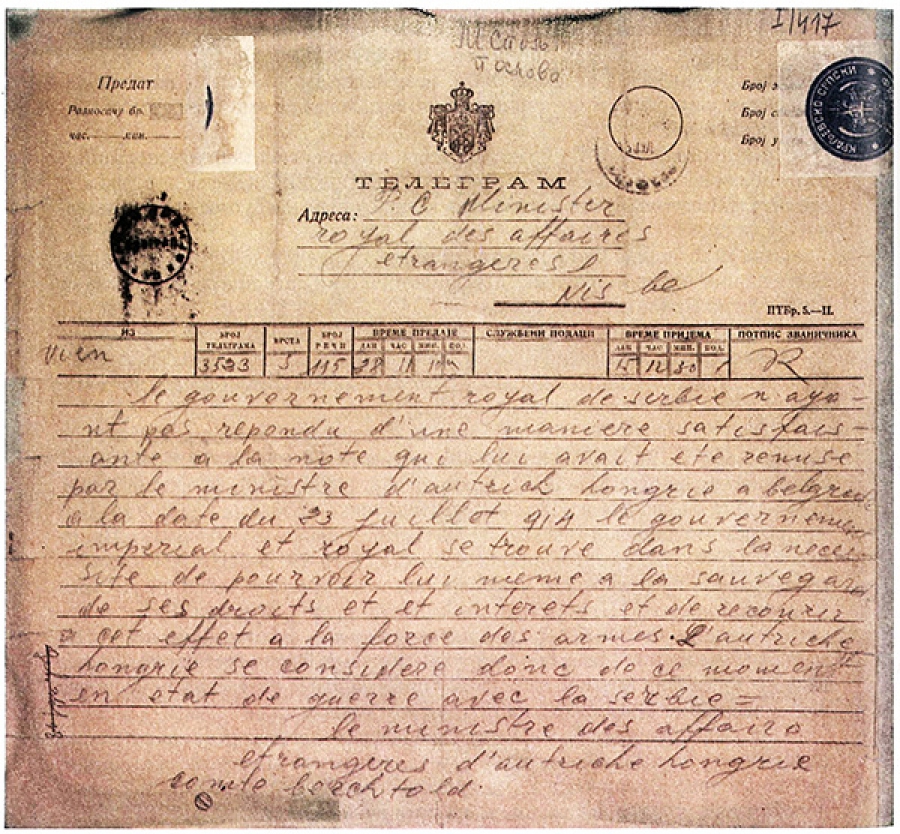 I/417
Предат
Разносачу бр.
час. мин.
Број
Број
Број
КРАЉЕВСКО СРПСКИ
ТЕЛЕГРАМ
Адреса: P. C Minister
royal des affaires
etrangeres
Nis
ПТБр. 5.—II.
ИЗ БРОЈ ТЕЛЕГРАМА ВРСТА БРОЈ РЕЧИ ВРЕМЕ ПРЕДАЈЕ СЛУЖБЕНИ ПОДАЦИ ВРЕМЕ ПРИЈЕМА ПОТПИС ЗВАНИЧНИКА
ДАН ЧАС МИН. ПОД. ДАН ЧАС МИН. ПОД.
Vien 3523 5 115 28 11
le gouvernement royal de serbie n aya-
nt pas repondu d'une maniere satisfais-
ante a la note qui lui avait ete remise
par le ministre d'autrich hongrie a belgrade
a la date du 23 juillot 914 le gouvernement
imperial et royal se trouve dans la neces
site de pourvoir lui meme a la sauvegar
de ses droits et et interets et de recourir
a cet effet a la force des armes. L'autriche
hongrie se considere donc de ce moment
en etat de guerre avec la serbie =
le ministre des affairs
etrangeres d'autriche hongrie
comte berchtold.